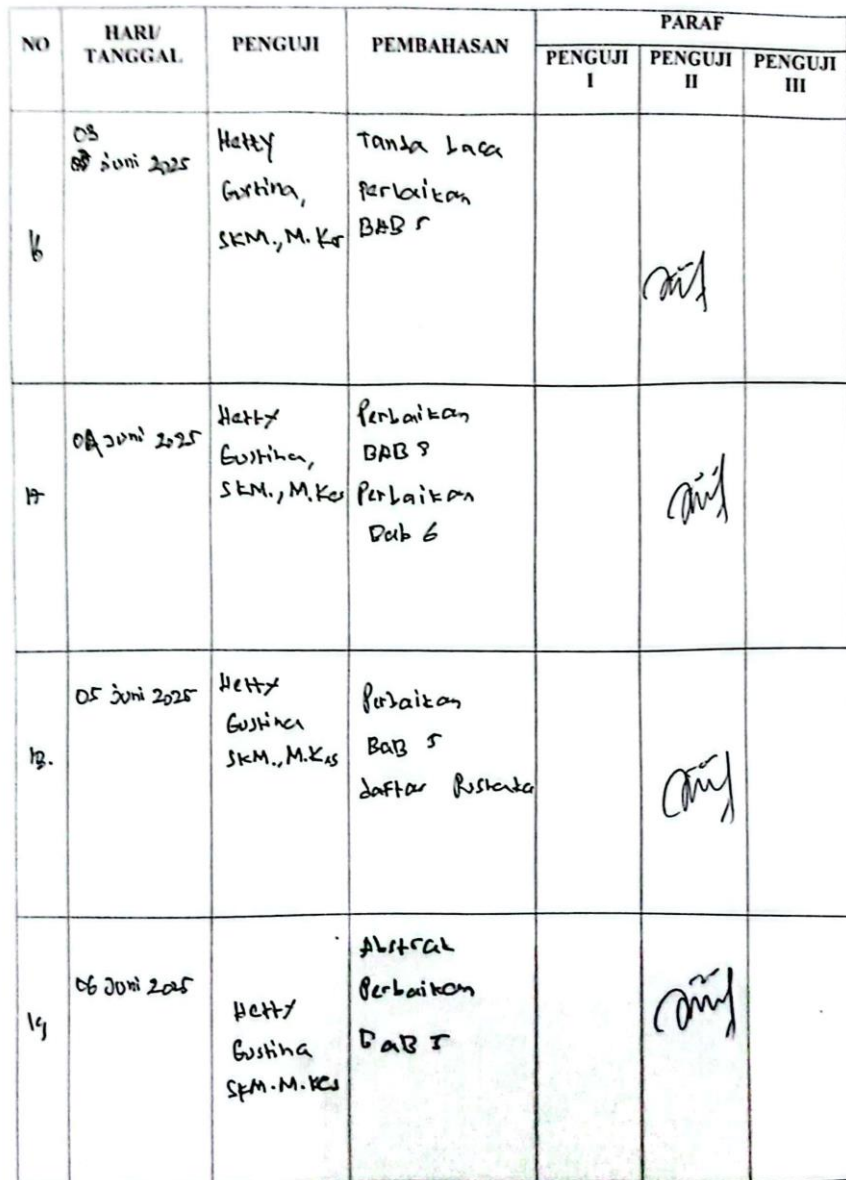 NO
HARI/
TANGGAL
PENGUJI
PEMBAHASAN
PARAF
PENGUJI
I
PENGUJI
II
PENGUJI
III
03
Juni 2025
Hetty
Gustina,
SKM., M.Kes
Tanda baca
Perbaikan
BAB 5
04 Juni 2025
Hetty
Gustina,
SKM., M.Kes
Perbaikan
BAB
Perbaikan
Bab 6
05 Juni 2025
Hetty
Gustina
SKM., M.Kes
Perbaikan
BaB 5
daftar Pustaka
06 Juni 2025
Hetty
Gustina
SKM. M. Kes
Abstrak
Perbaikan
BaB 5